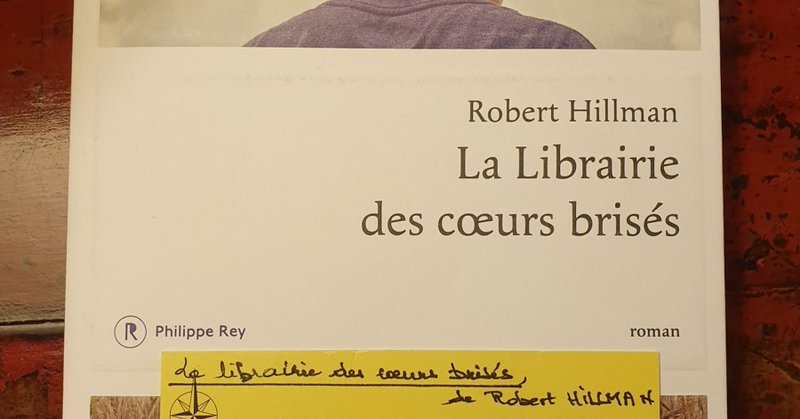 Robert Hillman
La Librairie
des cœurs brisés
R Philippe Rey
roman
La librairie des cœurs brisés,
de Robert HILLMAN